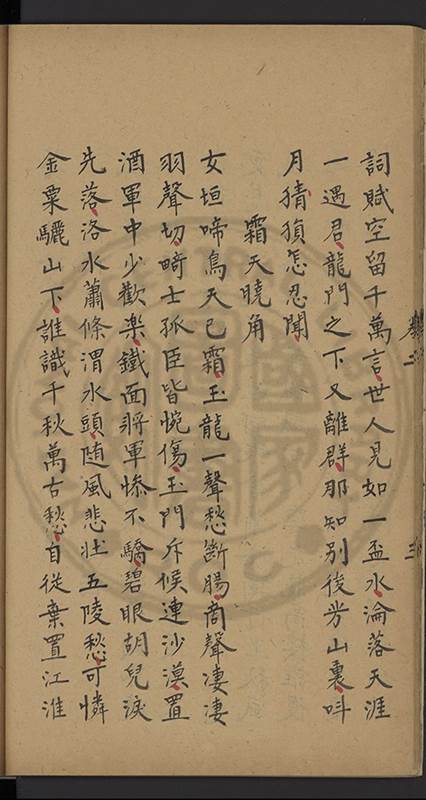 詞賦空留千萬言世人見如一盃水淪落天涯
一遇君龍門之下又離群那知別後芳山裏叫
月猜狺怎忍聞
霜天曉角
女垣啼鳥天已霜玉龍一聲愁斷腸商聲凄凄
羽聲切畸士孤臣皆惋傷玉門斥候連沙漠置
酒軍中少歡樂鐵面將軍慘不驕碧眼胡兒淚
先落洛水蕭條渭水頭隨風悲壯五陵愁可憐
金粟驪山下誰識千秋萬古愁自從棄置江淮